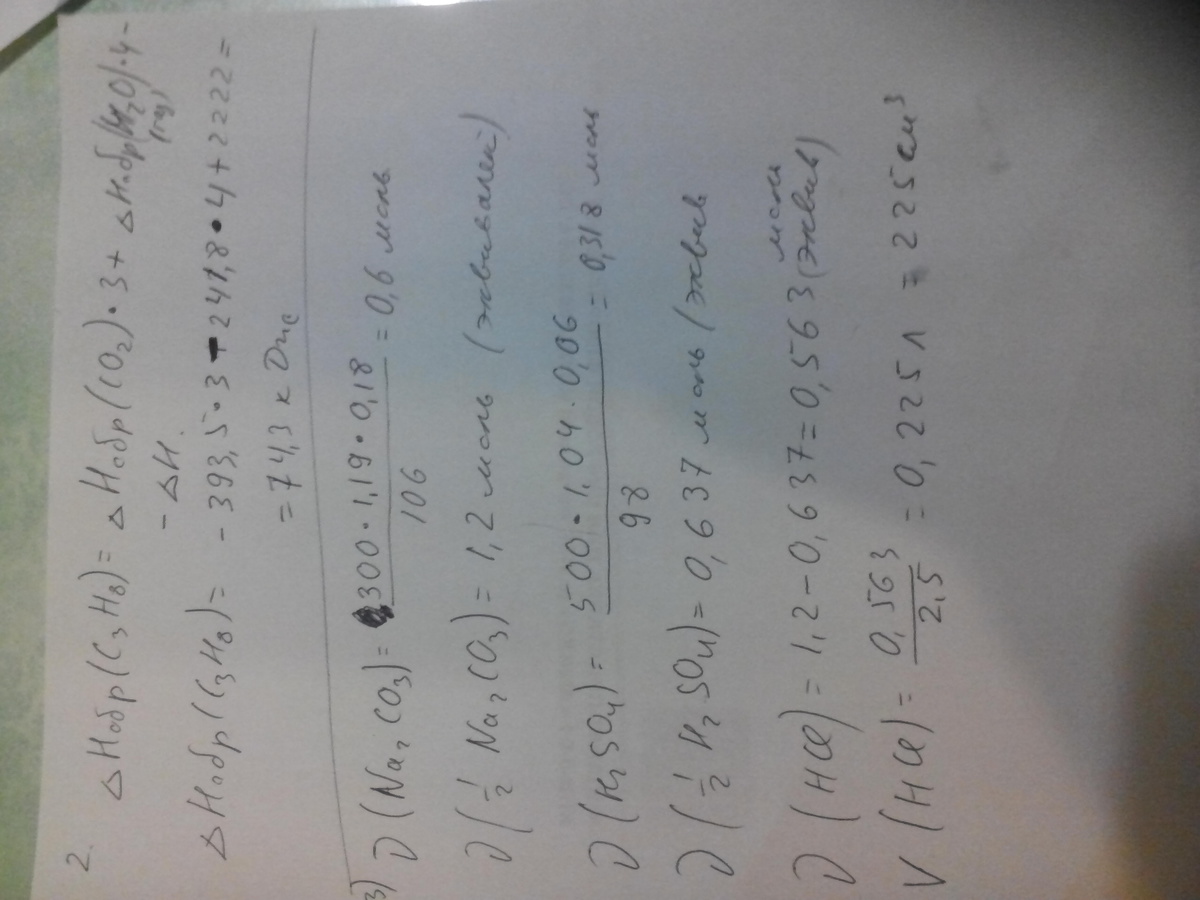 2.
ΔHобр(C₃H₈) = ΔHобр(CO₂)·3 + ΔHобр(H₂O)·4 -
(газ)
- ΔH
ΔHобр(C₃H₈) = -393,5·3 - 241,8·4 + 2222 =
= 74,3 кДж
3) ν(Na₂CO₃) = 300·1,19·0,18 / 106 = 0,6 моль
ν(1/2 Na₂CO₃) = 1,2 моль (эквивалей)
ν(H₂SO₄) = 500·1,04·0,06 / 98 = 0,318 моль
ν(1/2 H₂SO₄) = 0,637 моль (эквив
ν(HCl) = 1,2 - 0,637 = 0,563 моль (эквив)
V(HCl) = 0,563 / 2,5 = 0,225 л = 225 см³